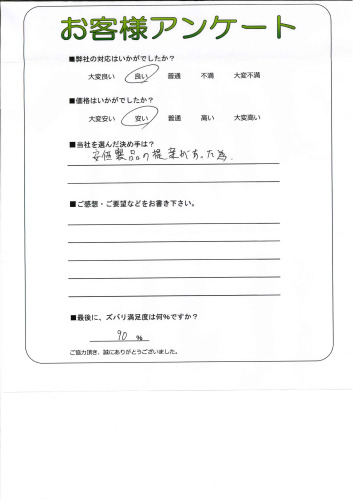 お客様アンケート
■弊社の対応はいかがでしたか?
大変良い 良い 普通 不満 大変不満
■価格はいかがでしたか?
大変安い 安い 普通 高い 大変高い
■当社を選んだ決め手は?
安価製品の提案があった為.
■ご感想・ご要望などをお書き下さい。
■最後に、ズバリ満足度は何%ですか?
90 %
ご協力頂き、誠にありがとうございました。